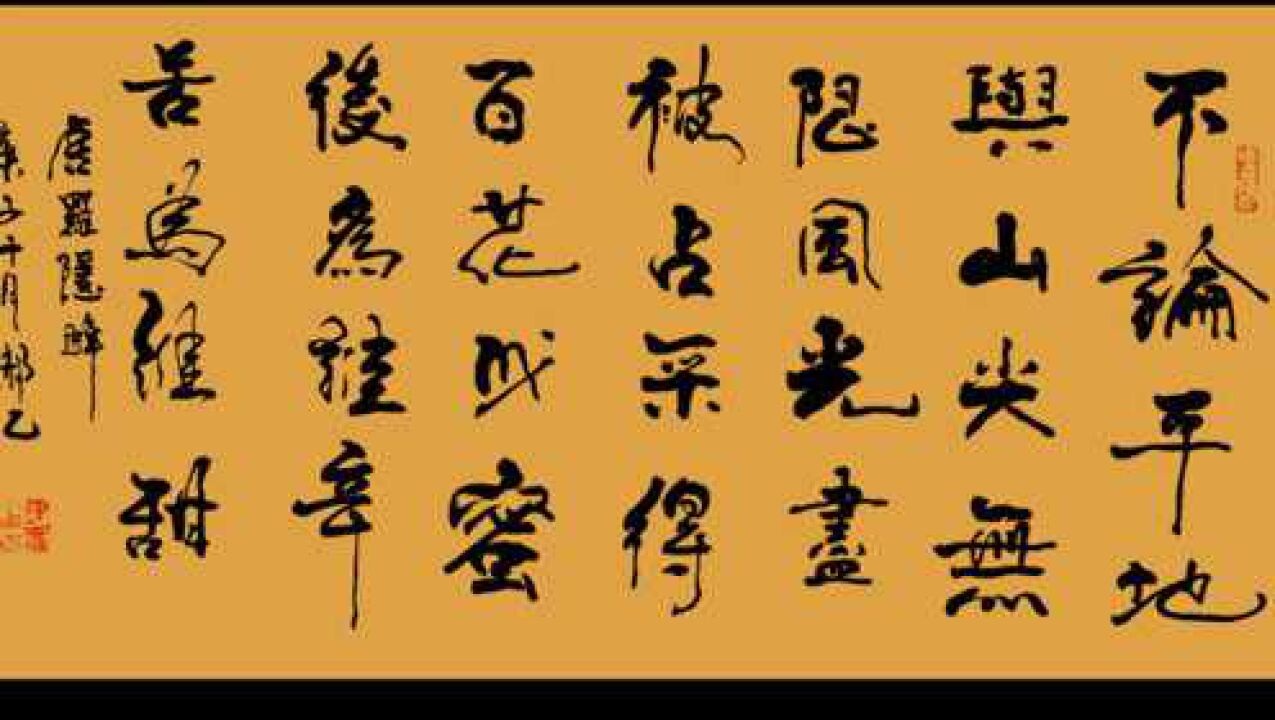 不論平地
與山尖無
限風光盡
被占采得
百花成蜜
後為誰辛
苦為誰甜
唐羅隱蜂
子十月